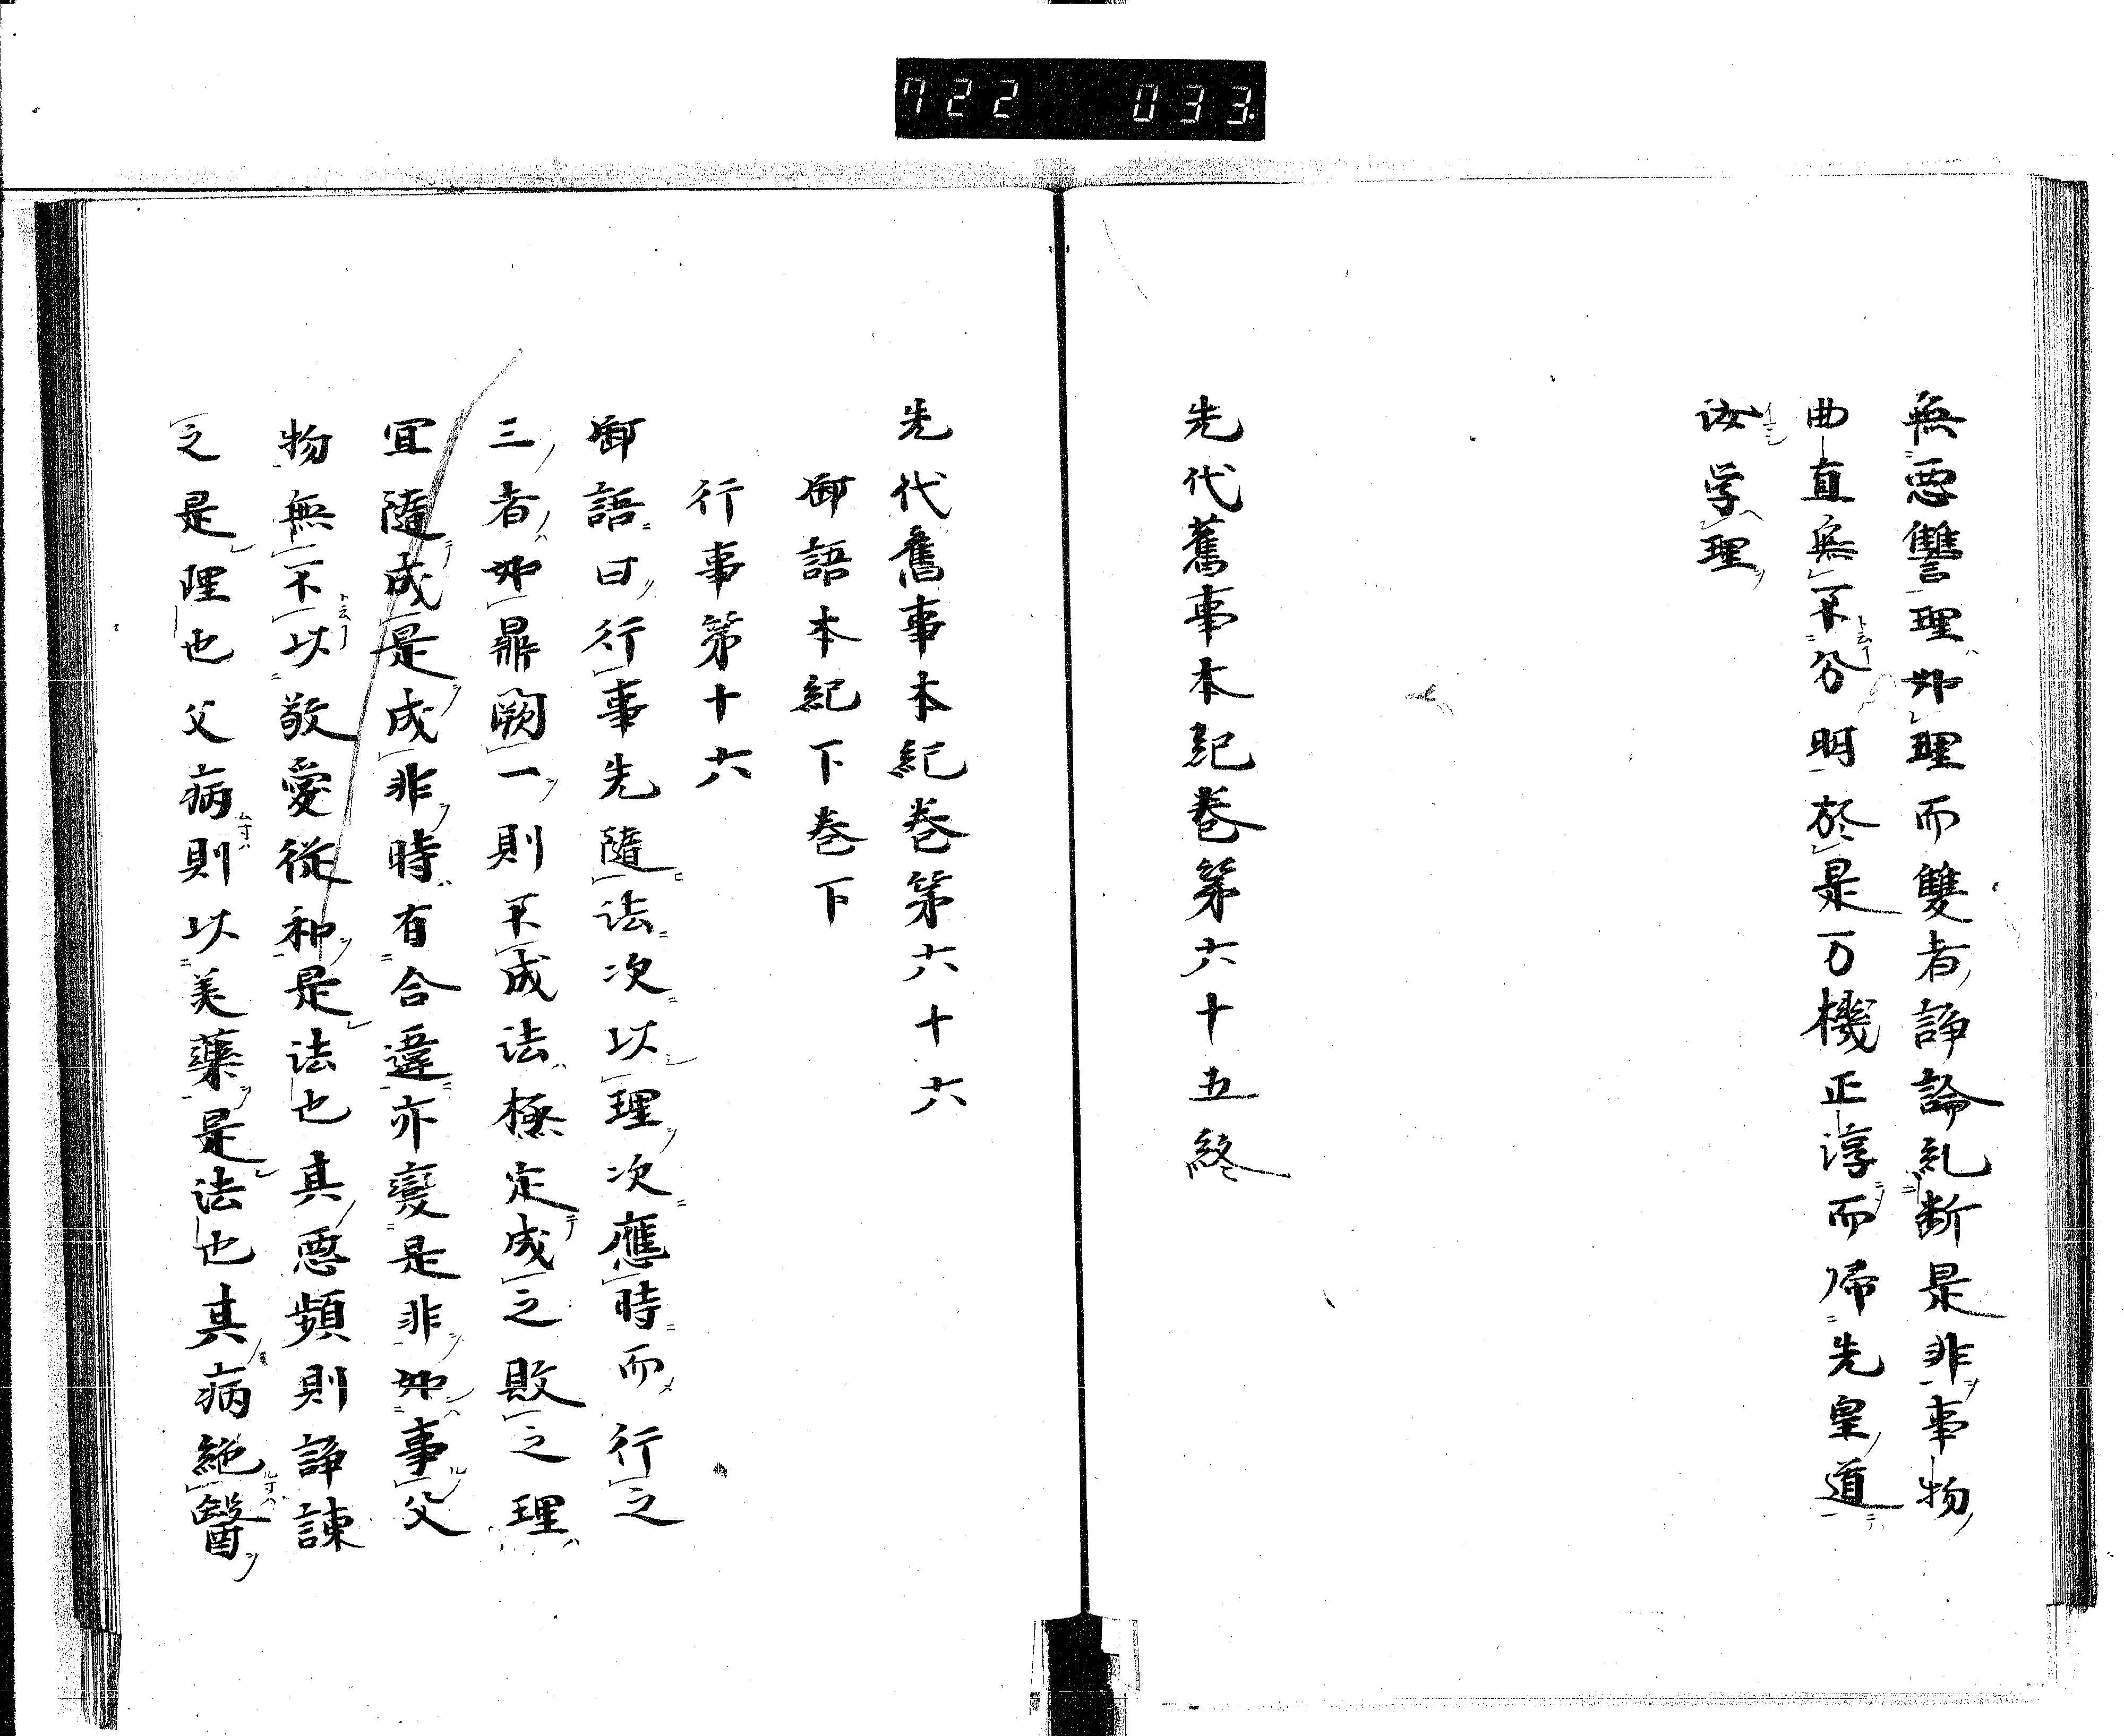 722 033
無悪讐理如理而雙者諍論糺断是非事物
曲直無不分明於是万機正淳而帰先皇道
汝学理
先代舊事本紀巻第六十五終
先代舊事本紀巻第六十六
御語本紀下巻下
行事第十六
御語曰行事先随法次以理次應時而行之
三者如鼎闕一則不成法極定成之敗之理
宜随成是成非時有合違亦変是非如事父
物無不以敬愛従和是法也其悪頻則諍諫
之是理也父病則以美薬是法也其病絶醫